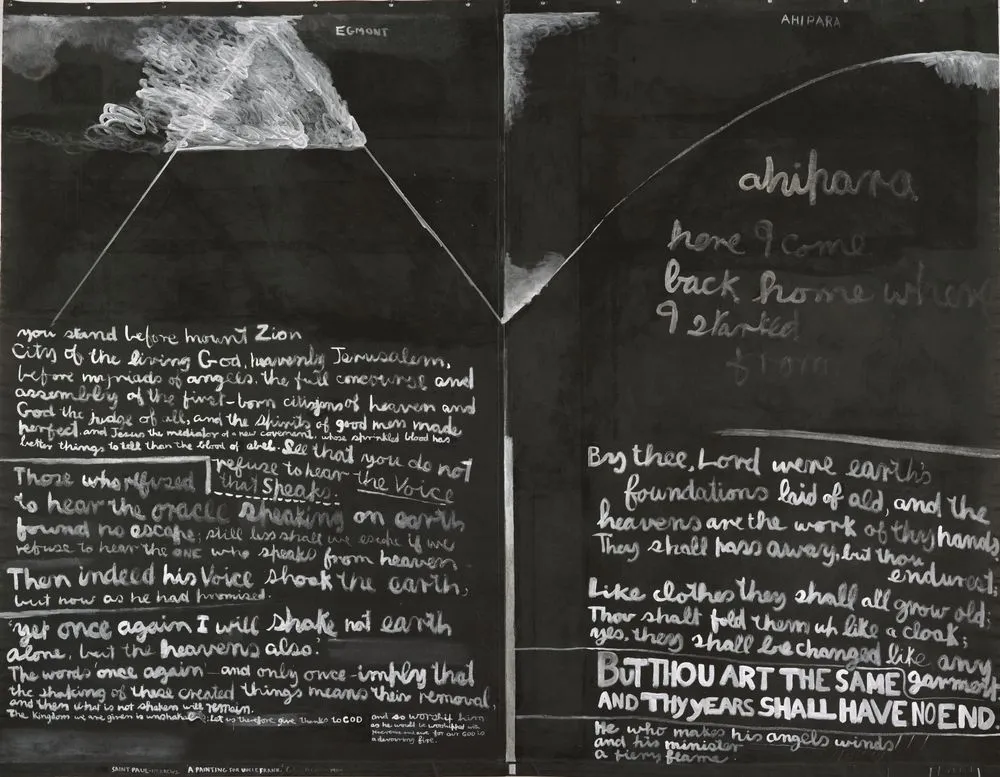 EGMONT
you stand before mount Zion
City of the living God, heavenly Jerusalem,
before myriads of angels, the full concourse and
assembly of the first-born citizens of heaven and
God the judge of all, and the spirits of good men made
perfect, and Jesus the mediator of a new covenant, whose sprinkled blood has
better things to tell than the blood of abel. See that you do not
refuse to hear the Voice
that Speaks.
Those who refused
to hear the oracle speaking on earth
found no escape; still less shall we escape if we
refuse to hear the ONE who speaks from heaven.
Then indeed his Voice shook the earth,
but now as he had promised.
'yet once again I will shake not earth
alone, but the heavens also.'
The words 'once again' - and only once - imply that
the shaking of these created things means their removal,
and then what is not shaken will remain.
The Kingdom we are given is unshakable; let us therefore give thanks to GOD
and so worship him
as he would be worshipped with
reverence and awe for our GOD is
a devouring fire.
SAINT PAUL: A PAINTING FOR UNCLE FRANK
AHIPARA
ahipara
here I come
back home where
I started
from
By thee, Lord were earth's
foundations laid of old, and the
heavens are the work of thy hands.
They shall pass away, but thou
endurest:
Like clothes they shall all grow old;
Thou shalt fold them up like a cloak;
yes, they shall be changed like any
garment
BUT THOU ART THE SAME
AND THY YEARS SHALL HAVE NO END.
He who makes his angels winds
and his minister
a fiery flame